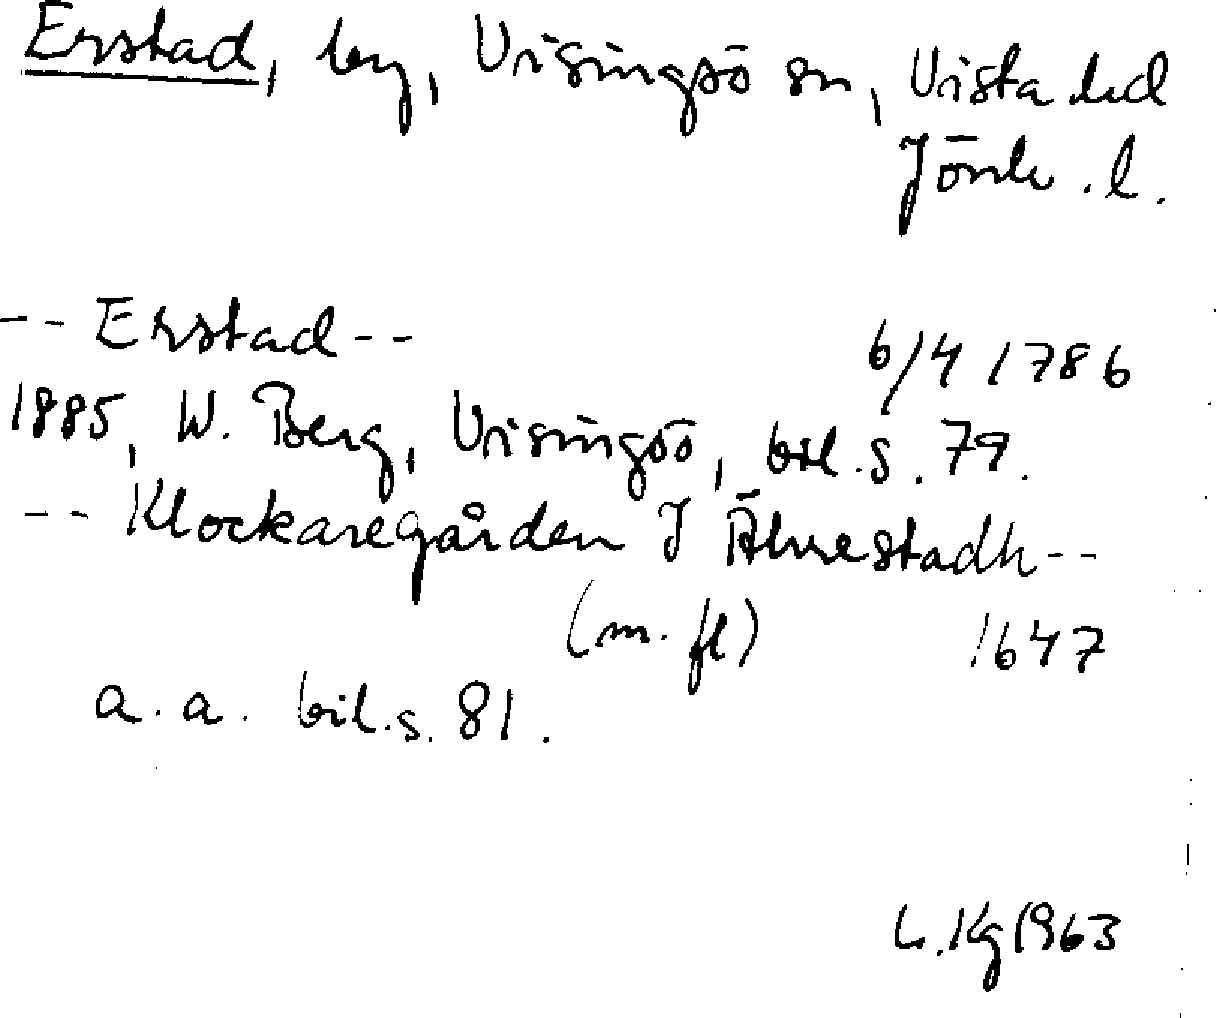 Erstad, by, Visingsö sn, Vista hd
Jönk. l.
-- Erstad --
6/4 1786
1885, W. Berg, Visingsö, bil. s. 79.
-- Klockaregården J Ährestadh --
(m. fl) 1647
a. a. bil. s. 81.
L. Kg 1963